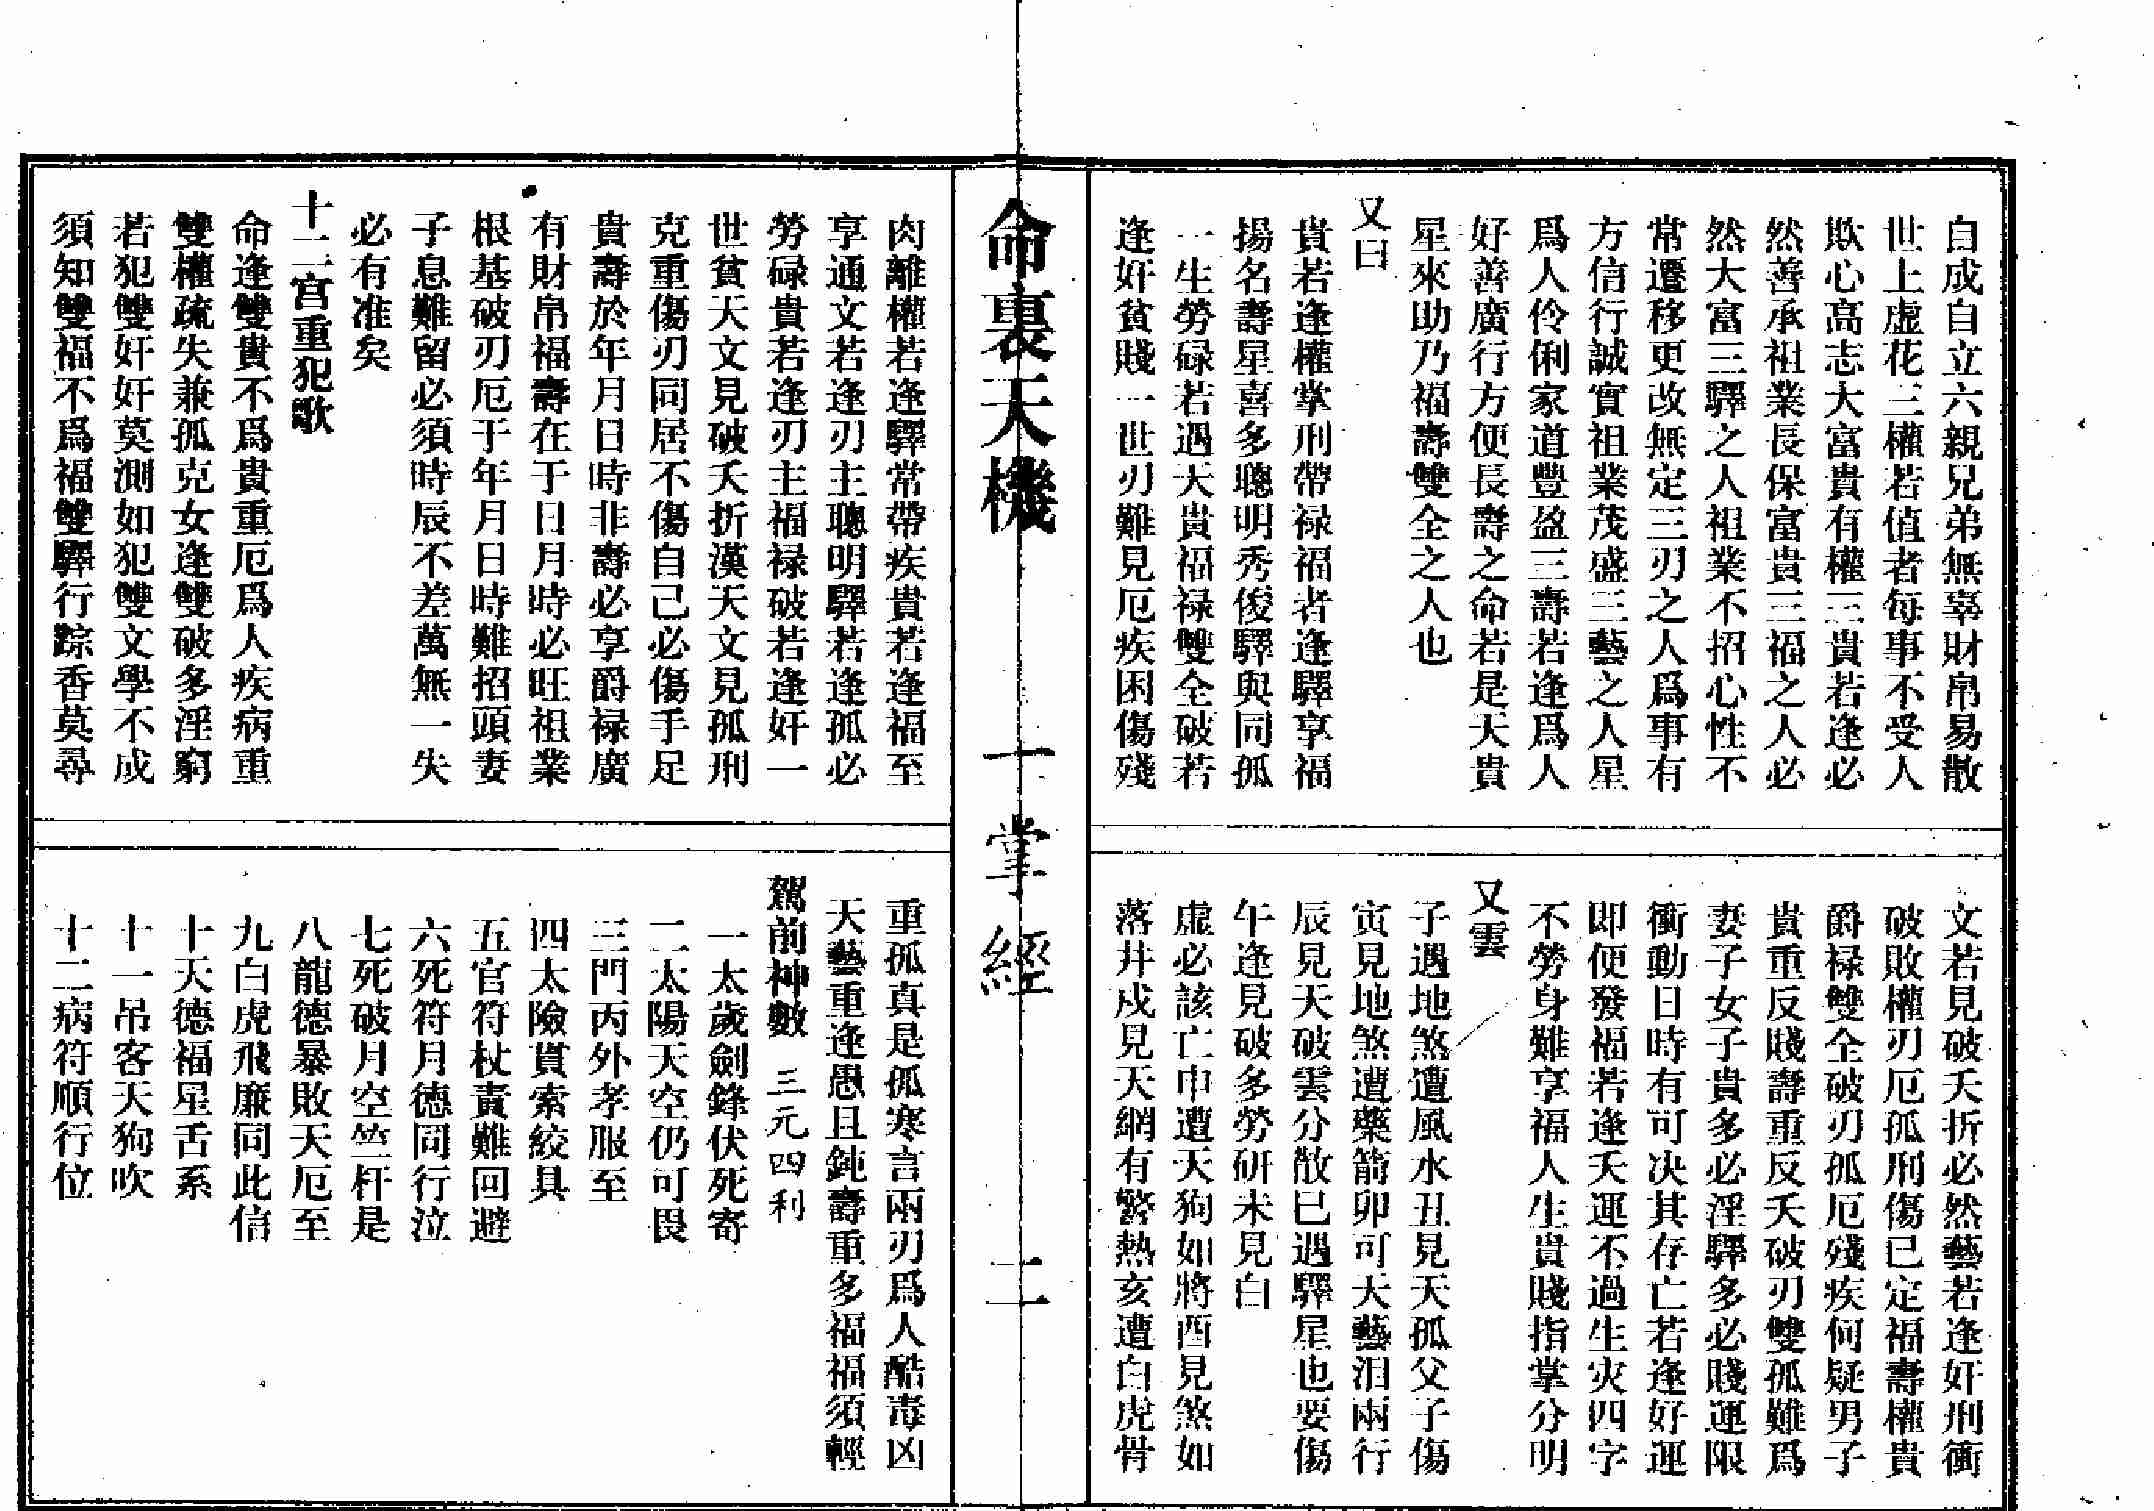 自成自立六親兄弟無辜財帛易散
世上虛花三權若值者每事不受人
欺心高志大富貴有權三貴若逢必
然善承祖業長保富貴三福之人必
然大富三驛之人祖業不招心性不
常遷移更改無定三刃之人爲事有
方信行誠實祖業茂盛三藝之人星
爲人伶俐家道豐盈三壽若逢爲人
好善廣行方便長壽之命若是天貴
星來助乃福壽雙全之人也
又曰
貴若逢權掌刑帶禄福者逢驛享福
揚名壽星喜多聰明秀俊驛與同孤
一生勞碌若遇天貴福禄雙全破若
逢奸貧賤一世刃難見厄疾困傷殘
文若見破夭折必然藝若逢奸刑衝
破敗權刃厄孤刑傷已定福壽權貴
爵禄雙全破刃孤厄殘疾何疑男子
貴重反賤壽重反夭破刃雙孤難爲
妻子女子貴多必淫驛多必賤運限
衝動日時有可决其存亡若逢好運
即便發福若逢夭運不過生灾四字
不勞身難享福人生貴賤指掌分明
又雲
子遇地煞遭風水丑見天孤父子傷
寅見地煞遭藥箭卯可大藝泪兩行
辰見天破雲分散巳遇驛星也要傷
午逢見破多勞研未見白
虛必該亡申遭天狗如將酉見煞如
落井戍見天網有繁熱亥遭白虎骨
命裏天機
一掌經
二
肉離權若逢驛常帶疾貴若逢福至
享通文若逢刃主聰明驛若逢孤必
勞碌貴若逢刃主福禄破若逢奸一
世貧天文見破夭折漢天文見孤刑
克重傷刃同居不傷自己必傷手足
貴壽於年月日時非壽必享爵禄廣
有財帛福壽在于日月時必旺祖業
根基破刃厄于年月日時難招頭妻
子息難留必須時辰不差萬無一失
必有准矣
十二宫重犯歌
命逢雙貴不爲貴重厄爲人疾病重
雙權疏失兼孤克女逢雙破多淫窮
若犯雙奸奸莫測如犯雙文學不成
須知雙福不爲福雙驛行踪香莫尋
重孤真是孤寒言兩刃爲人酷毒凶
天藝重逢愚且鈍壽重多福福須輕
駕前神數 三元四利
一太歲劍鋒伏死寄
二太陽天空仍可畏
三門丙外孝服至
四太險貫索絞具
五官符杖責難回避
六死符月德同行泣
七死破月空竺杆是
八龍德暴敗天厄至
九白虎飛廉同此信
十天德福星舌系
十一吊客天狗吠
十二病符順行位